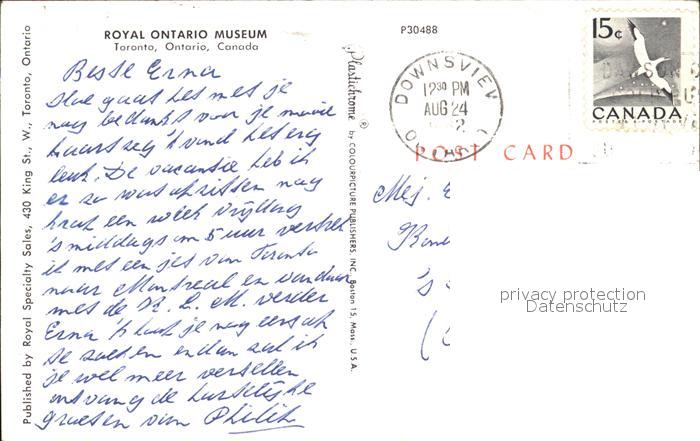 ROYAL ONTARIO MUSEUM
Toronto, Ontario, Canada
P30488
Beste Erna
Hoe gaat het met je
nog bedankt voor je mooie
kaart zeg 'k vond het erg
leuk. De vacantie heb ik
er zo wat opzitten nog
een week vrijdag
's middags om 5 uur vertrek
ik met een jet van Toronto
naar Montreal en vandaar
met de K. L. M. verder
Erna 'k je nog eens op
te zoeken en dan zal ik
je wel meer vertellen
ontvang de hartelijke
groeten van Philip
Published by Royal Specialty Sales, 430 King St., W., Toronto, Ontario
Plastichrome ® by COLOURPICTURE PUBLISHERS, INC. Boston 15, Mass. U.S.A.
DOWNSVIEW
12³⁰ PM
AUG 24
2
15¢
CANADA
POST CARD
Mej. E
's
privacy protection
Datenschutz